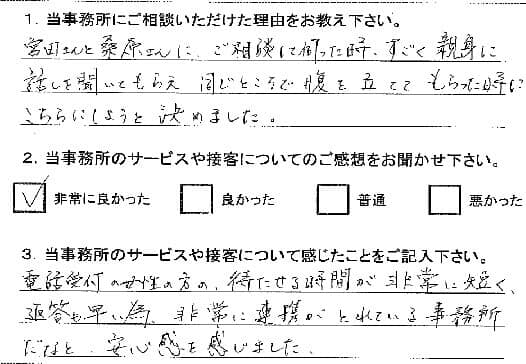 1. 当事務所にご相談いただけた理由をお教え下さい。
宮田さんと桑原さんに、ご相談に伺った時、すごく親身に
話しを聞いてもらえ 同じところで腹を立ててもらった時に
こちらにしようと決めました。
2. 当事務所のサービスや接客についてのご感想をお聞かせ下さい。
☑ 非常に良かった □ 良かった □ 普通 □ 悪かった
3. 当事務所のサービスや接客について感じたことをご記入下さい。
電話受付の女性の方の、待たせる時間が非常に短く、
返答も早い為、非常に連携がとれている事務所
だなと、安心感を感じました。